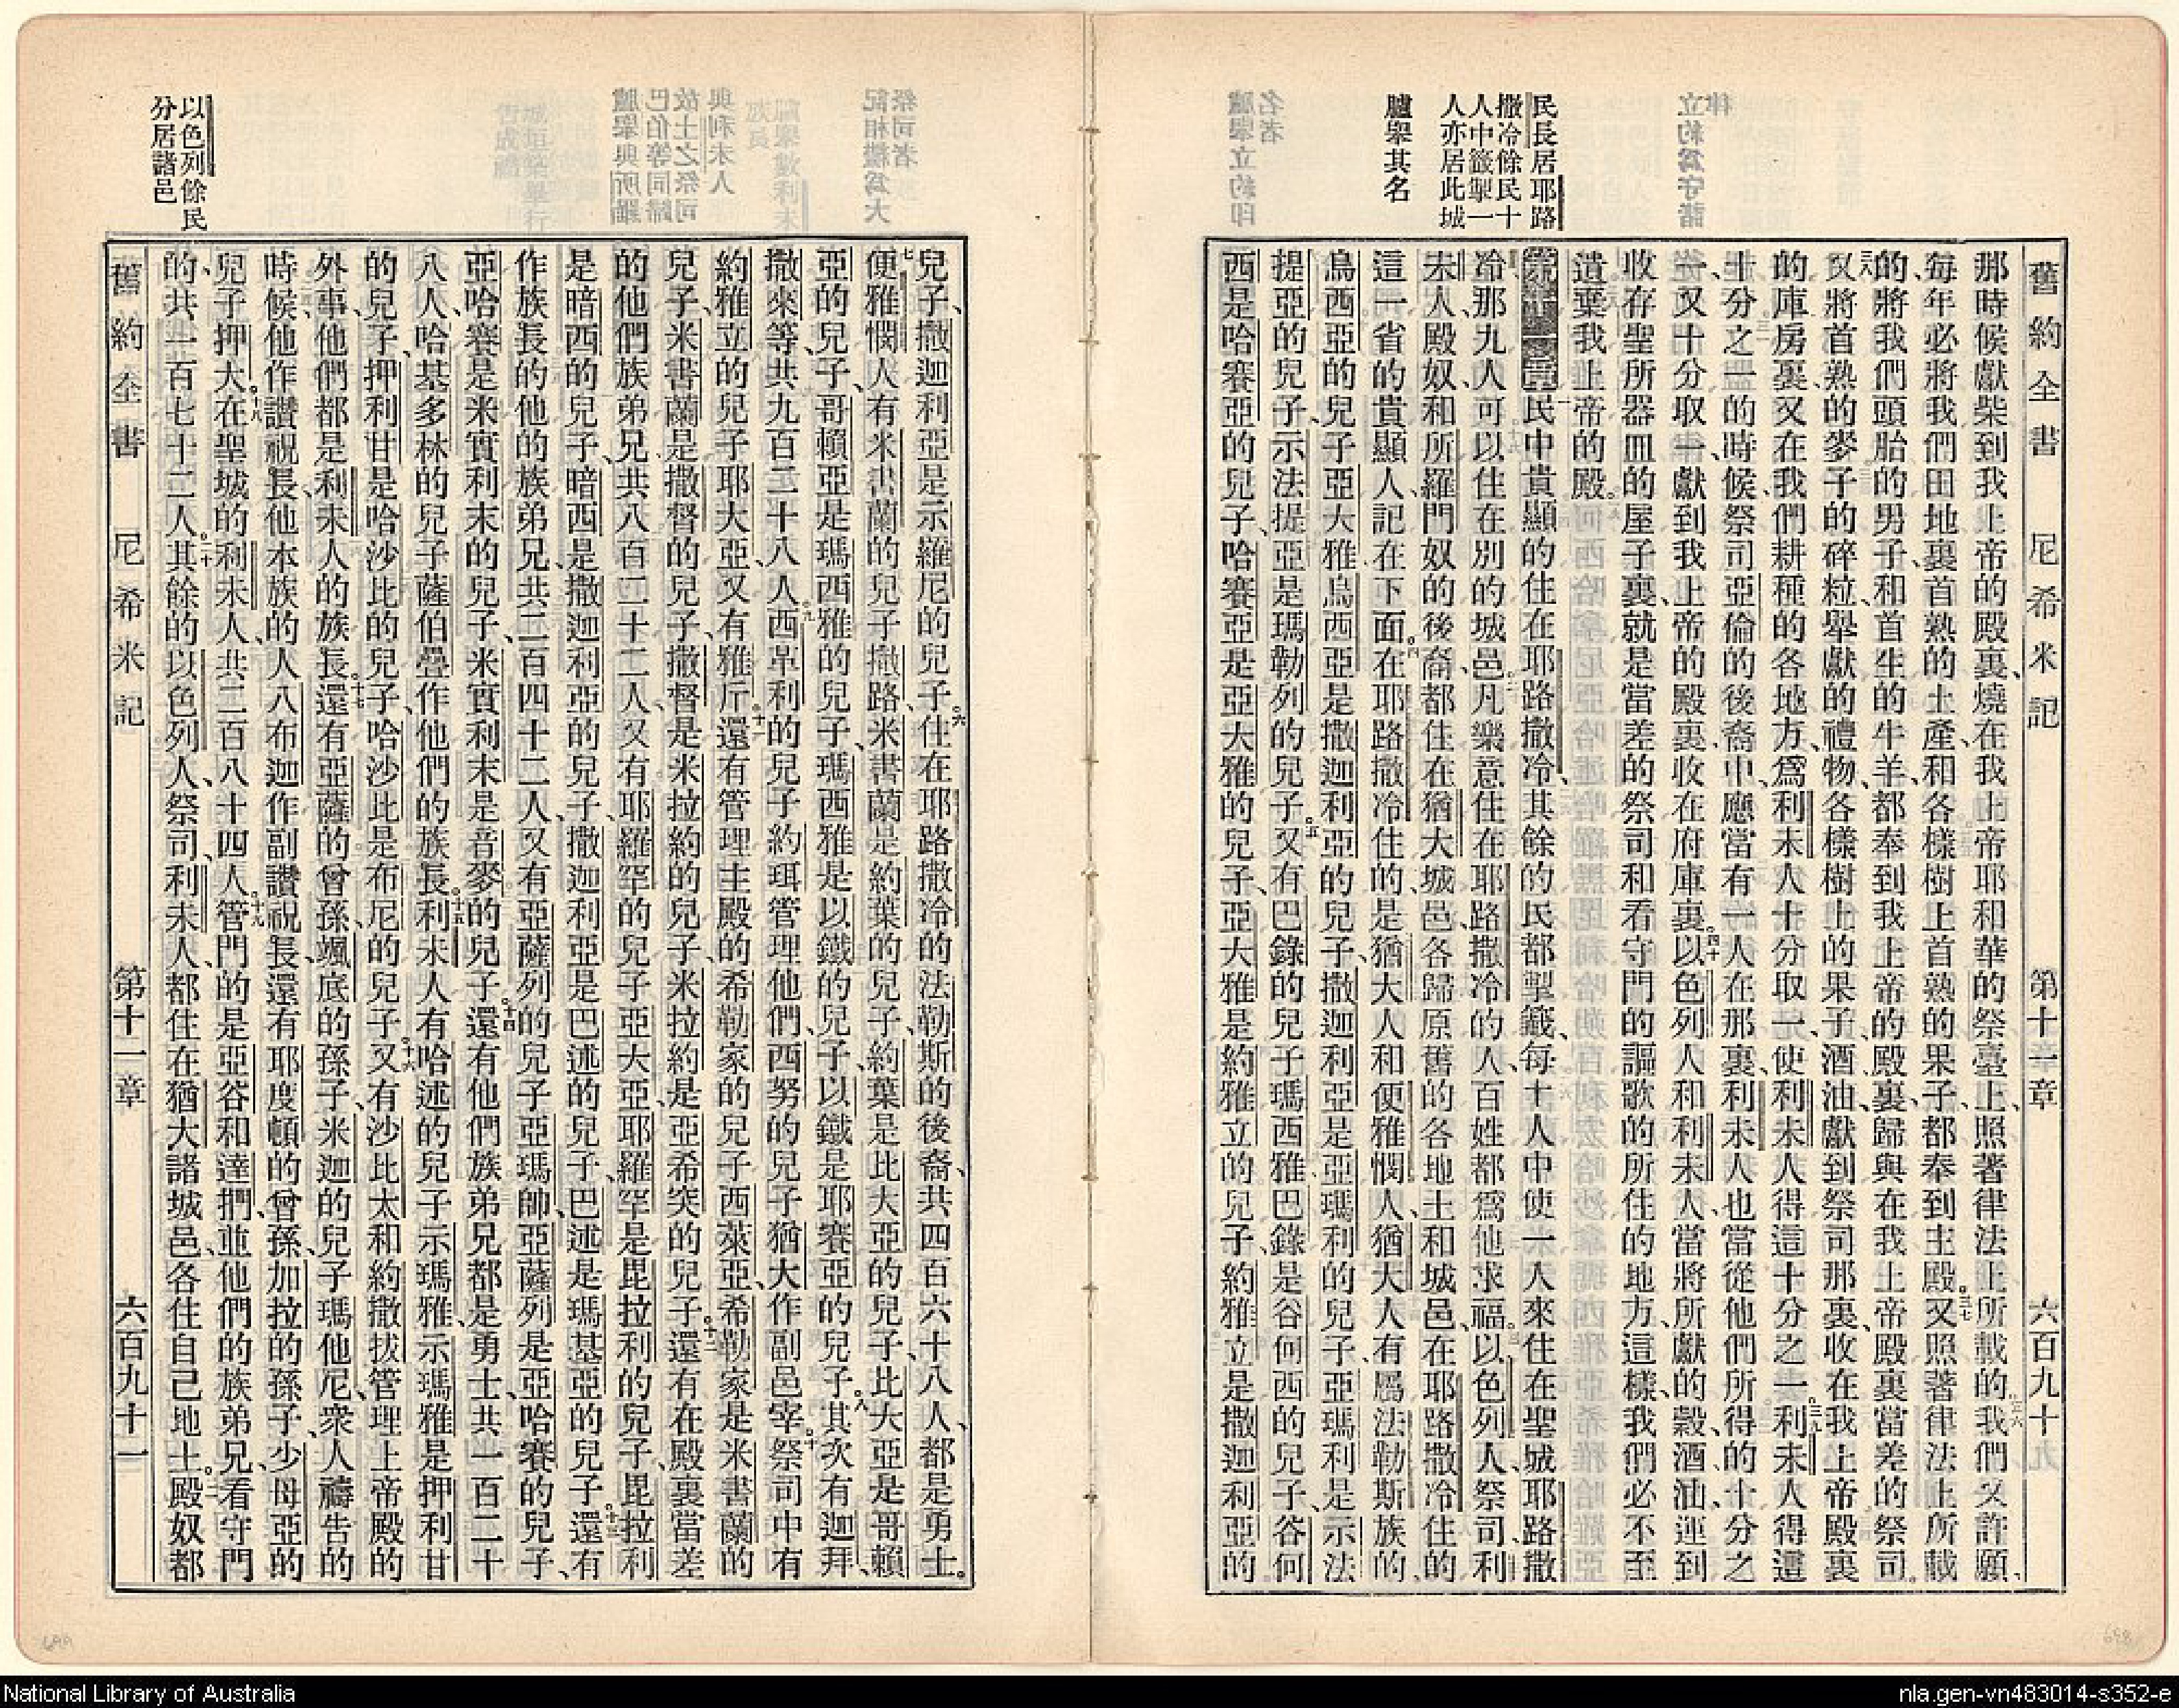 舊約全書 尼希米記 第十一章 六百九十
那時候獻柴到我上帝的殿裏、燒在我上帝耶和華的祭臺上、照著律法上所載的我們又許願、
每年必將我們田地裏首熟的土產、和各樣樹上首熟的果子、都奉到主殿。又照著律法上所載
的將我們頭胎的男子、和首生的牛羊、都奉到我上帝的殿裏、歸與在我上帝殿裏當差的祭司。
又將首熟的麥子的碎粒、舉獻的禮物、各樣樹上的果子、酒油、獻到祭司那裏、收在我上帝殿裏
的庫房裏、又在我們耕種的各地方、爲利未人十分取一、使利未人得這十分之一。利未人得這
十分之一的時候、祭司亞倫的後裔中、應當有一人在那裏、利未人也當從他們所得的十分之
一、又十分取一、獻到我上帝的殿裏、收在府庫裏。以色列人和利未人、當將所獻的穀酒油、運到
收存聖所器皿的屋子裏、就是當差的祭司和看守門的謳歌的所住的地方、這樣、我們必不至
遺棄我上帝的殿。
民中貴顯的住在耶路撒冷、其餘的民都掣籤、每十人中使一人來住在聖城耶路撒
冷、那九人可以住在別的城邑。凡樂意住在耶路撒冷的人、百姓都爲他求福。以色列人、祭司、利
未人、殿奴、和所羅門奴的後裔、都住在猶大城邑、各歸原舊的各地土和城邑、在耶路撒冷住的
這一省的貴顯人、記在下面。在耶路撒冷住的、是猶大人和便雅憫人、猶大人有屬法勒斯族的
烏西亞的兒子亞大雅、烏西亞是撒迦利亞的兒子、撒迦利亞是亞瑪利的兒子、亞瑪利是示法
提亞的兒子、示法提亞是瑪勒列的兒子。又有巴錄的兒子瑪西雅、巴錄是谷何西的兒子、谷何
西是哈賽亞的兒子、哈賽亞是亞大雅的兒子、亞大雅是約雅立的兒子、約雅立是撒迦利亞的
民長居耶路
撒冷餘民十
人中籤掣一
人亦居此城
臚舉其名
兒子、撒迦利亞是示羅尼的兒子。住在耶路撒冷的法勒斯的後裔、共四百六十八人、都是勇士。
便雅憫人有米書蘭的兒子撒路、米書蘭是約葉的兒子、約葉是比大亞的兒子、比大亞是哥賴
亞的兒子、哥賴亞是瑪西雅的兒子、瑪西雅是以鐵的兒子、以鐵是耶賽亞的兒子。其次有迦拜、
撒來等、共九百二十八人。西革利的兒子約珥管理他們、西努的兒子猶大作副邑宰。祭司中有
約雅立的兒子耶大亞、又有雅斤。還有管理主殿的希勒家的兒子西萊亞、希勒家是米書蘭的
兒子、米書蘭是撒督的兒子、撒督是米拉約的兒子、米拉約是亞希突的兒子。還有在殿裏當差
的他們族弟兄、共八百二十二人、又有耶羅罕的兒子亞大亞、耶羅罕是毘拉利的兒子、毘拉利
是暗西的兒子、暗西是撒迦利亞的兒子、撒迦利亞是巴述的兒子、巴述是瑪基亞的兒子。還有
作族長的他的族弟兄、共二百四十二人、又有亞薩列的兒子亞瑪帥、亞薩列是亞哈賽的兒子、
亞哈賽是米實利末的兒子、米實利末是音麥的兒子。還有他們族弟兄都是勇士、共一百二十
八人、哈基多林的兒子薩伯疊作他們的族長。利未人有哈述的兒子示瑪雅、示瑪雅是押利甘
的兒子、押利甘是哈沙比的兒子、哈沙比是布尼的兒子。又有沙比太和約撒拔、管理上帝殿的
外事、他們都是利未人的族長。還有亞薩的曾孫、颯底的孫子、米迦的兒子瑪他尼、衆人禱告的
時候、他作讚祝長、他本族的人八布迦作副讚祝長、還有耶度頓的曾孫、加拉的孫子、少母亞的
兒子押大。在聖城的利未人、共二百八十四人。管門的是亞谷和達捫、並他們的族弟兄、看守門
的、共一百七十二人。其餘的以色列人、祭司、利未人、都住在猶大諸城邑、各住自己地土。殿奴都
舊約全書 尼希米記 第十一章 六百九十一
以色列餘民
分居諸邑
National Library of Australia
nla.gen-vn483014-s352-e